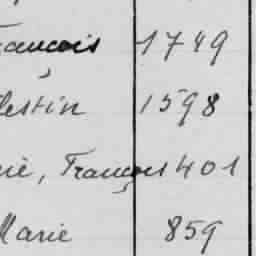 François 1749
lestin 1598
rie, François 401
Marie 859